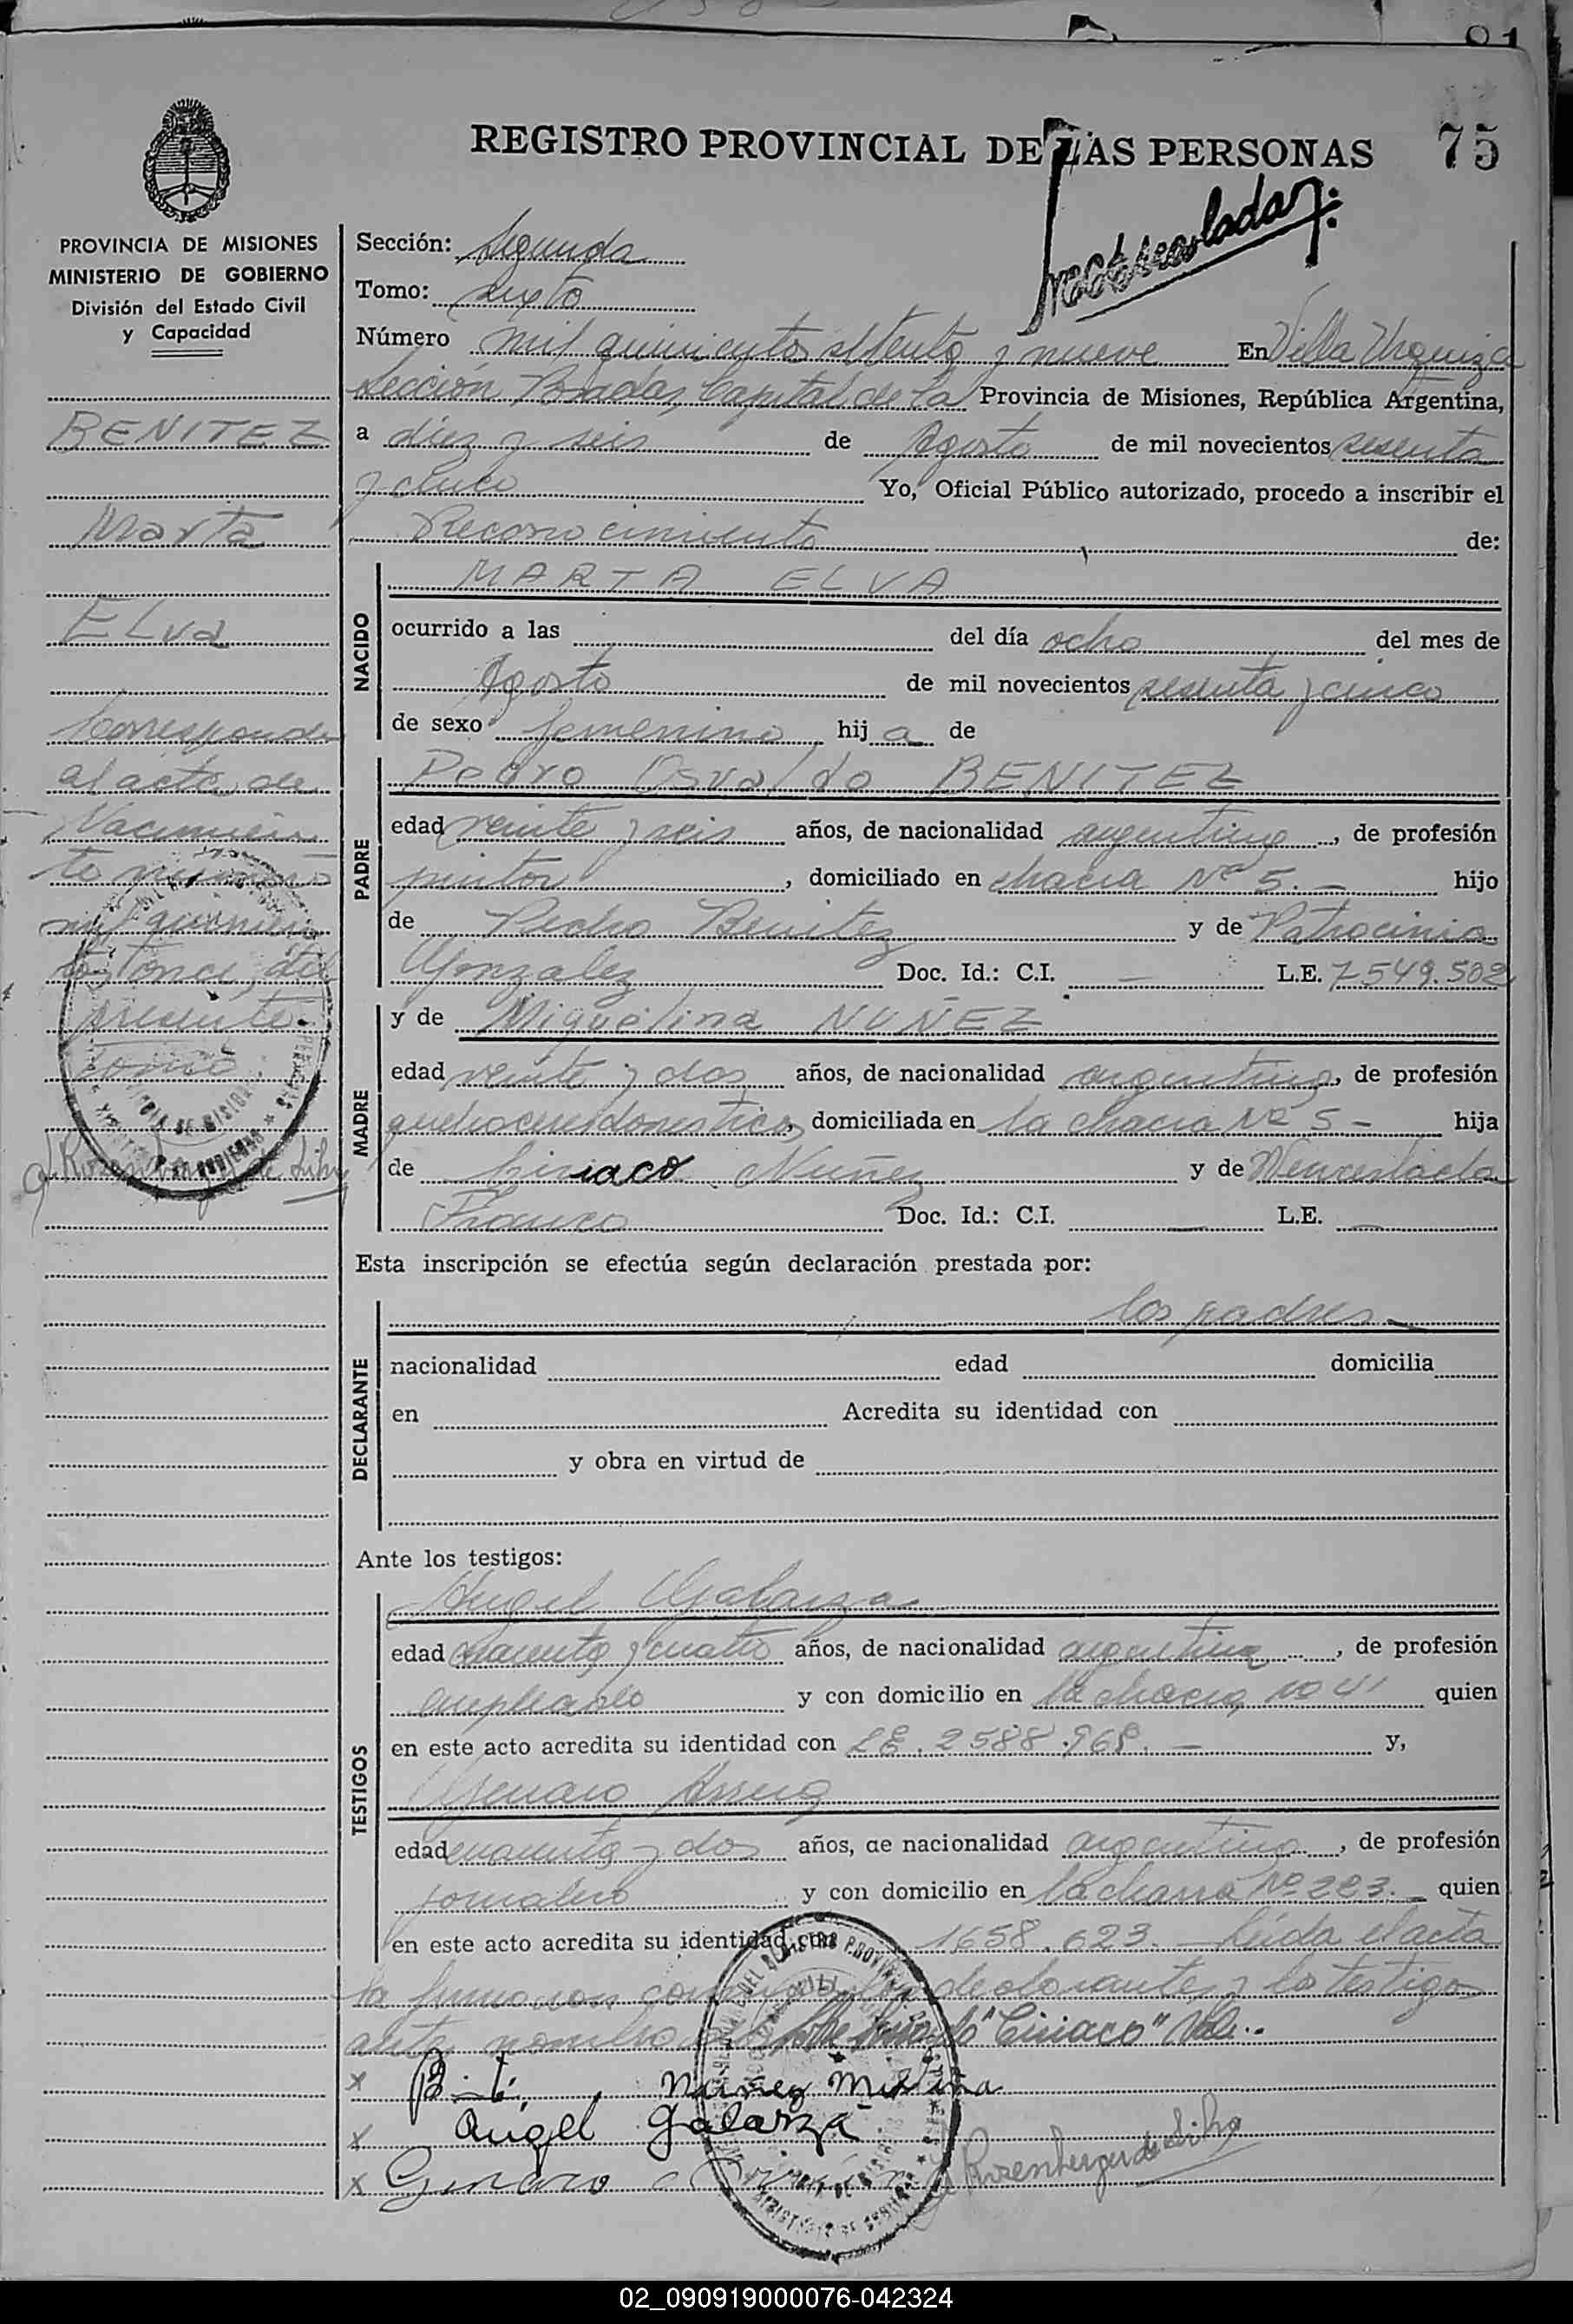 75
REGISTRO PROVINCIAL DE LAS PERSONAS
PROVINCIA DE MISIONES
MINISTERIO DE GOBIERNO
División del Estado Civil
y Capacidad
BENITEZ
Marta
ELva
Corresponde
al acta de
Nacimien
to número
mil quinien
tos once, del
presente
tomo
Sección: Segunda
Tomo: sexto
Número mil quinientos setenta y nueve En Villa Urquiza
Sección Posadas, Capital de la Provincia de Misiones, República Argentina,
a diez y seis de Agosto de mil novecientos sesenta
y cinco Yo, Oficial Público autorizado, procedo a inscribir el
Reconocimiento de:
NACIDO
MARTA ELVA
ocurrido a las del día ocho del mes de
Agosto de mil novecientos sesenta y cinco
de sexo femenino hij a de
PADRE
Pedro Osvaldo BENITEZ
edad veinte y seis años, de nacionalidad argentino, de profesión
pintor, domiciliado en chacra Nº 5. — hijo
de Pedro Benitez y de Patrocinia
Gonzalez Doc. Id.: C.I. — L.E. 7549.502
MADRE
y de Miguelina NUÑEZ
edad veinte y dos años, de nacionalidad argentina, de profesión
quehaceres domesticos, domiciliada en la chacra Nº 5 — hija
de Ciriaco Nuñez y de Wenceslada
Franco Doc. Id.: C.I. — L.E. —
Esta inscripción se efectúa según declaración prestada por:
DECLARANTE
los padres —
nacionalidad edad domicilia
en Acredita su identidad con
y obra en virtud de
Ante los testigos:
TESTIGOS
Angel Galarza
edad cuarenta y cuatro años, de nacionalidad argentina, de profesión
empleado y con domicilio en la chacra, no 41 quien
en este acto acredita su identidad con LE. 2588.968. — y,
Genaro
edad cuarenta y dos años, de nacionalidad argentino, de profesión
jornalero y con domicilio en la chacra Nº 223. — quien
en este acto acredita su identidad con 1658.623. Leida el acta
la firmaron declarantes y los testigos
"Ciriaco" Vale.
x Nuñez
x Angel Galarza
x Genaro
Rosenberger de Silva
02_090919000076-042324